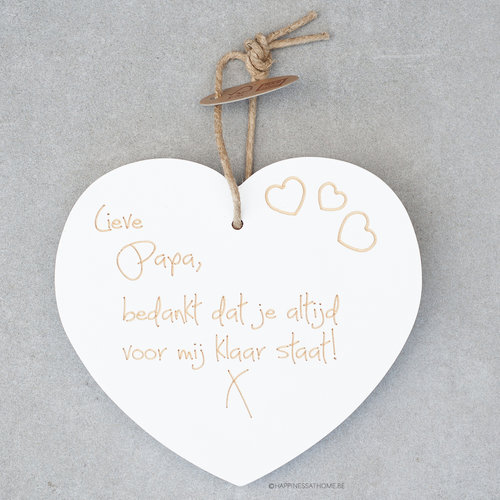 Lieve
Papa,
bedankt dat je altijd
voor mij klaar staat!
X
©HAPPINESSATHOME.BE